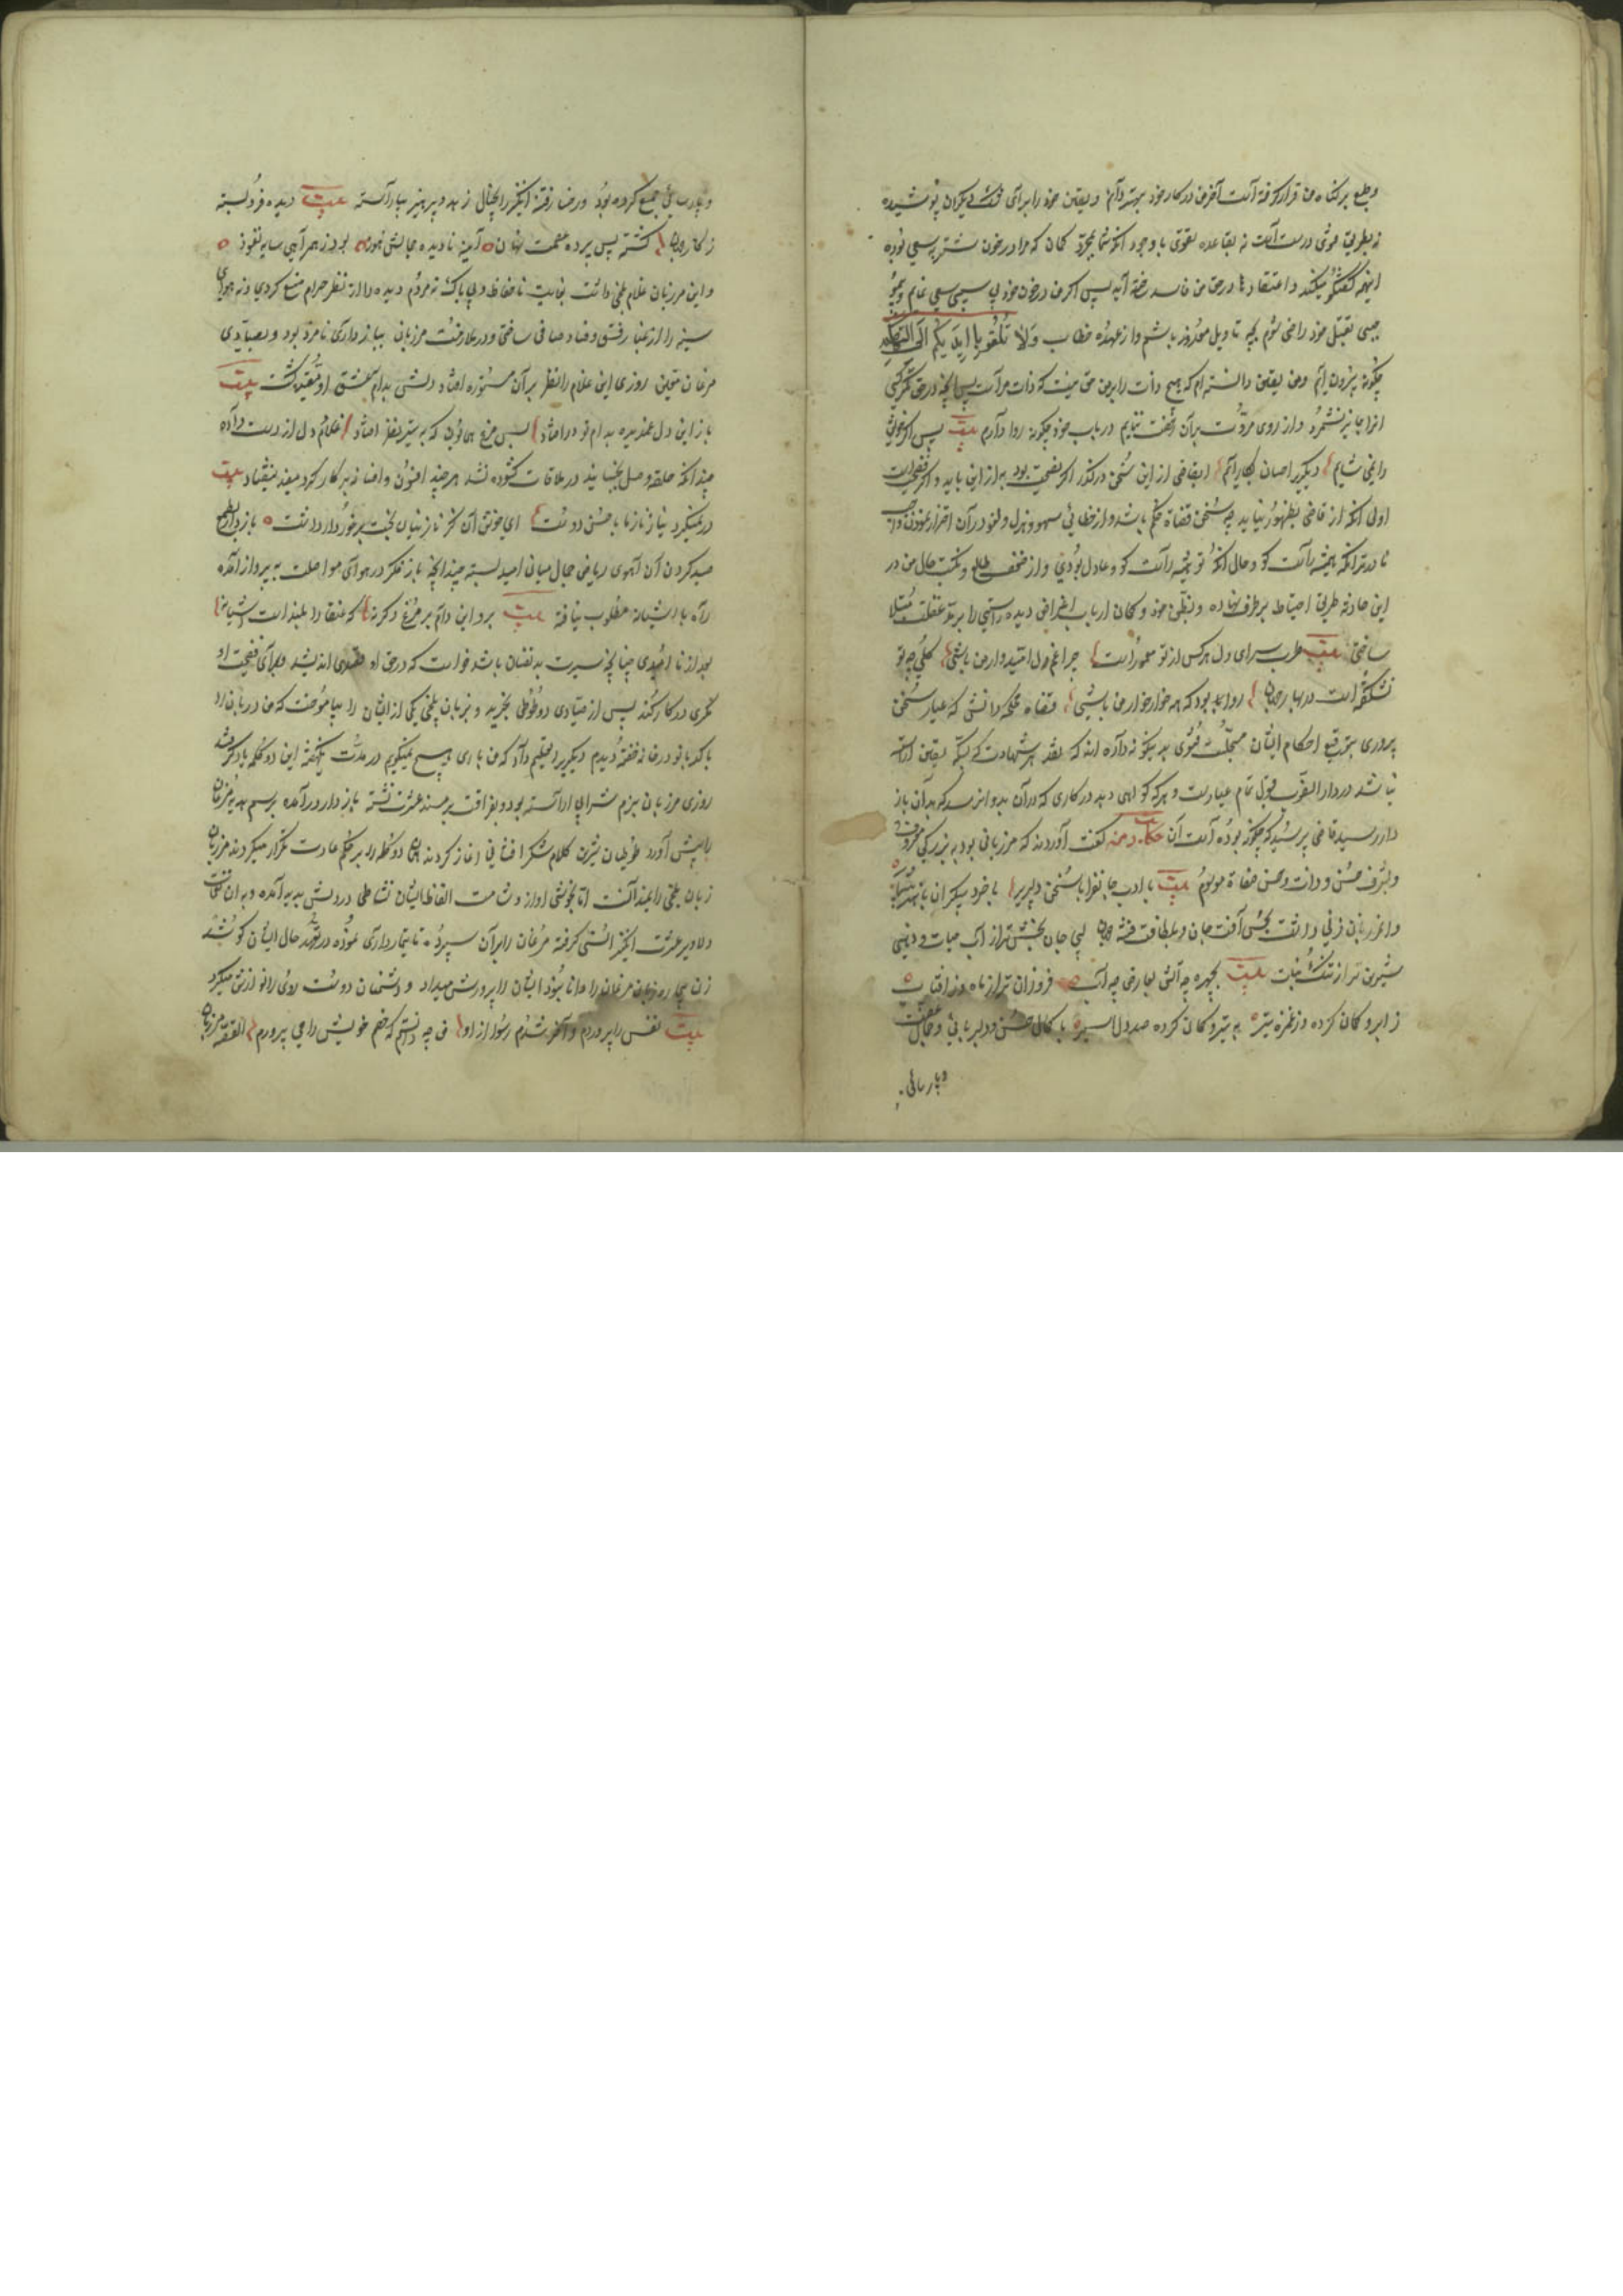 و طبع بر گناه من قرار گرفته است آخر من در کار خود بهتر دانم و یقین خود را برای شک دیگران پوشیدن
نه بطریق مروت درست است نه بقاعده تقوی با وجود آنکه شما بمجرد گمان که مرا در خون شتربه سعی بوده
اینهمه گفتگو میکنید و اعتقادها در حق من فاسد شده اید پس اگر من در خون خود بی سببی سعی نمایم و بی
موجبی بقتل خود راضی شوم بچه تاویل معذور باشم و از عهده خطاب وَلَا تُلْقُوا بِأَيْدِيكُمْ إِلَى التَّهْلُكَة
چگونه بیرون آیم و من یقین دانسته ام که هیچ ذات را بر من حق نیست که ذات مراست پس آنچه در حق دیگری
آنرا جایز نشمرم و از روی مروت بدان رخصت نیابم در باب خود چگونه روا دارم بیت پس اگر خویش
را نمی شایم دیگری را چسان بکار آیم ای قاضی از این سخن درگذر اگر نصیحت بود به از این باید و اگر فضیحت است
اولی آنکه از قاضی بظهور نیاید چه سخن قضاة حکم باشد و از خطا و سهو و هزل و لغو در آن احتراز نمودن واجب
نادرتر آنکه همیشه راست گو و حال آنکه تو همیشه راست گو و عادل بودی و از ضعف طالع و نکبت حال من در
این حادثه طریق احتیاط بر طرف نهاده و بظن خود و گمان ارباب اغراض دیده راستی را بپرده غفلت مبتلا
ساختی بیت طرب سرای دل هر کس از تو معمور است چرا غم دل امیدوار من باشی گلی چو تو
نشکفته است در بهار جهان روا بود که همه خار خار من باشی قضاة محکمه دانش که عیار سخن
پروری بتوقیع احکام ایشان مسجل است فتوی بدینگونه داده اند که نقد هر شهادت که بسکه یقین آراسته
نباشد در دار الضرب قبول تمام عیار نیست و هر که گواهی دهد در کاری که در آن بدو آن رسد که بدان باز
دار رسید قاضی پرسید که چگونه بوده است آن حکایت دمنه گفت آوردند که مرزبانی بود به بزرگی معروف
و بشرف حسن و ذات و حسن صفات موسوم بیت با ادب جانفزا با سخن دلپذیر با خرد بیکران با هنر بیشمار
و این مرزبان زنی داشت بحسن آفت جان و بلطافت فتنه جهان لبی جان بخش تر از آب حیات و دهنی
شیرین تر از تنگ نبات بیت بچهره چو آتش بعارض چو آب فروزان تر از ماه و از آفتاب
ز ابرو کمان کرده و ز غمزه تیر به تیر و کمان کرده صد دل اسیر با کمال حسن و دلربائی و جمال عفت
و پارسائی
و پارسائی جمع کرده بود و رخساره فتنه انگیز را بخال زهد و پرهیز بیاراسته بیت دیده فرو بسته
ز کار جهان گشته پس پرده عصمت نهان آینه نادیده بمالش نمون بود ز همراهی سایه نفور
و این مرزبان غلام بلخی داشت بغایت ناحفاظ و بی باک نه مردم دیده را از نظر حرام منع کردی و نه هوای
سینه را از غبار فسق و فساد صافی ساختی و در ملازمت مرزبان ببازداری نامزد بود و بصیادی
مرغان متعین روزی این غلام را نظر بر آن مستوره افتاد و دلش بدام عشق او مقید گشت بیت
باز این دل غمدیده بدام تو درافتاد بس مرغ همایون که به تیر نظر افتاد غلام دل از دست داده
چندانکه حلقه وصل جنبانید در ملاقات گشوده نشد هر چند افسون و افسانه بر کار کرد مفید نیفتاد بیت
در نمیگیرد نیاز و ناز ما با حسن دوست ای خوش آن کز نازنینان بخت برخوردار داشت بازدار بطمع
صید کردن آن آهوی ریاض جمال میان امید بسته چندانچه باز تفکر در هوای مواصلت به پرواز آمده
راه با آشیانه مطلوب نیافته بیت برو این دام بر مرغ دگر نه که عنقا را بلند است آشیانه
بعد از ناامیدی چنانچه سیرت بدنفسان باشد خواست که در حق او قصدی اندیشد و برای فضیحت او
مکری در کار کند پس از صیادی دو طوطی بخرید و بزبان بلخی یکی از ایشان را بیاموخت که من دربان را
با کدبانو در خانه خفته دیدم و دیگری را تعلیم داد که من باری هیچ نمیگویم در مدت یکهفته این دو کلمه یاد گرفتند
روزی مرزبان بزم شراب آراسته بود و بفراغت بر مسند عشرت نشسته بازدار درآمده برسم هدیه مرغان
را پیش آورد طوطیان شیرین کلام شکر افشانی آغاز کردند و آن دو کلمه را بر حکم عادت تکرار میکردند مرزبان
زبان بلخی را نمیدانست اما بخوشی آواز و تناسب الفاظ ایشان نشاطی در دلش پدید آمده و بدان نغمات
دلاویز عشرت انگیز انسی گرفته مرغان را بزن سپرد تا تیمارداری نموده در تعهد حال ایشان کوشد
زن بیچاره زبان مرغان را دانا نبود ایشان را پرورش میداد و دشمنان دوست روی را نوازش میکرد
بیت نفس را پروردم و آخر شدم رسوا از او من چه دانستم که خصم خویش را می پرورم القصه مرزبان